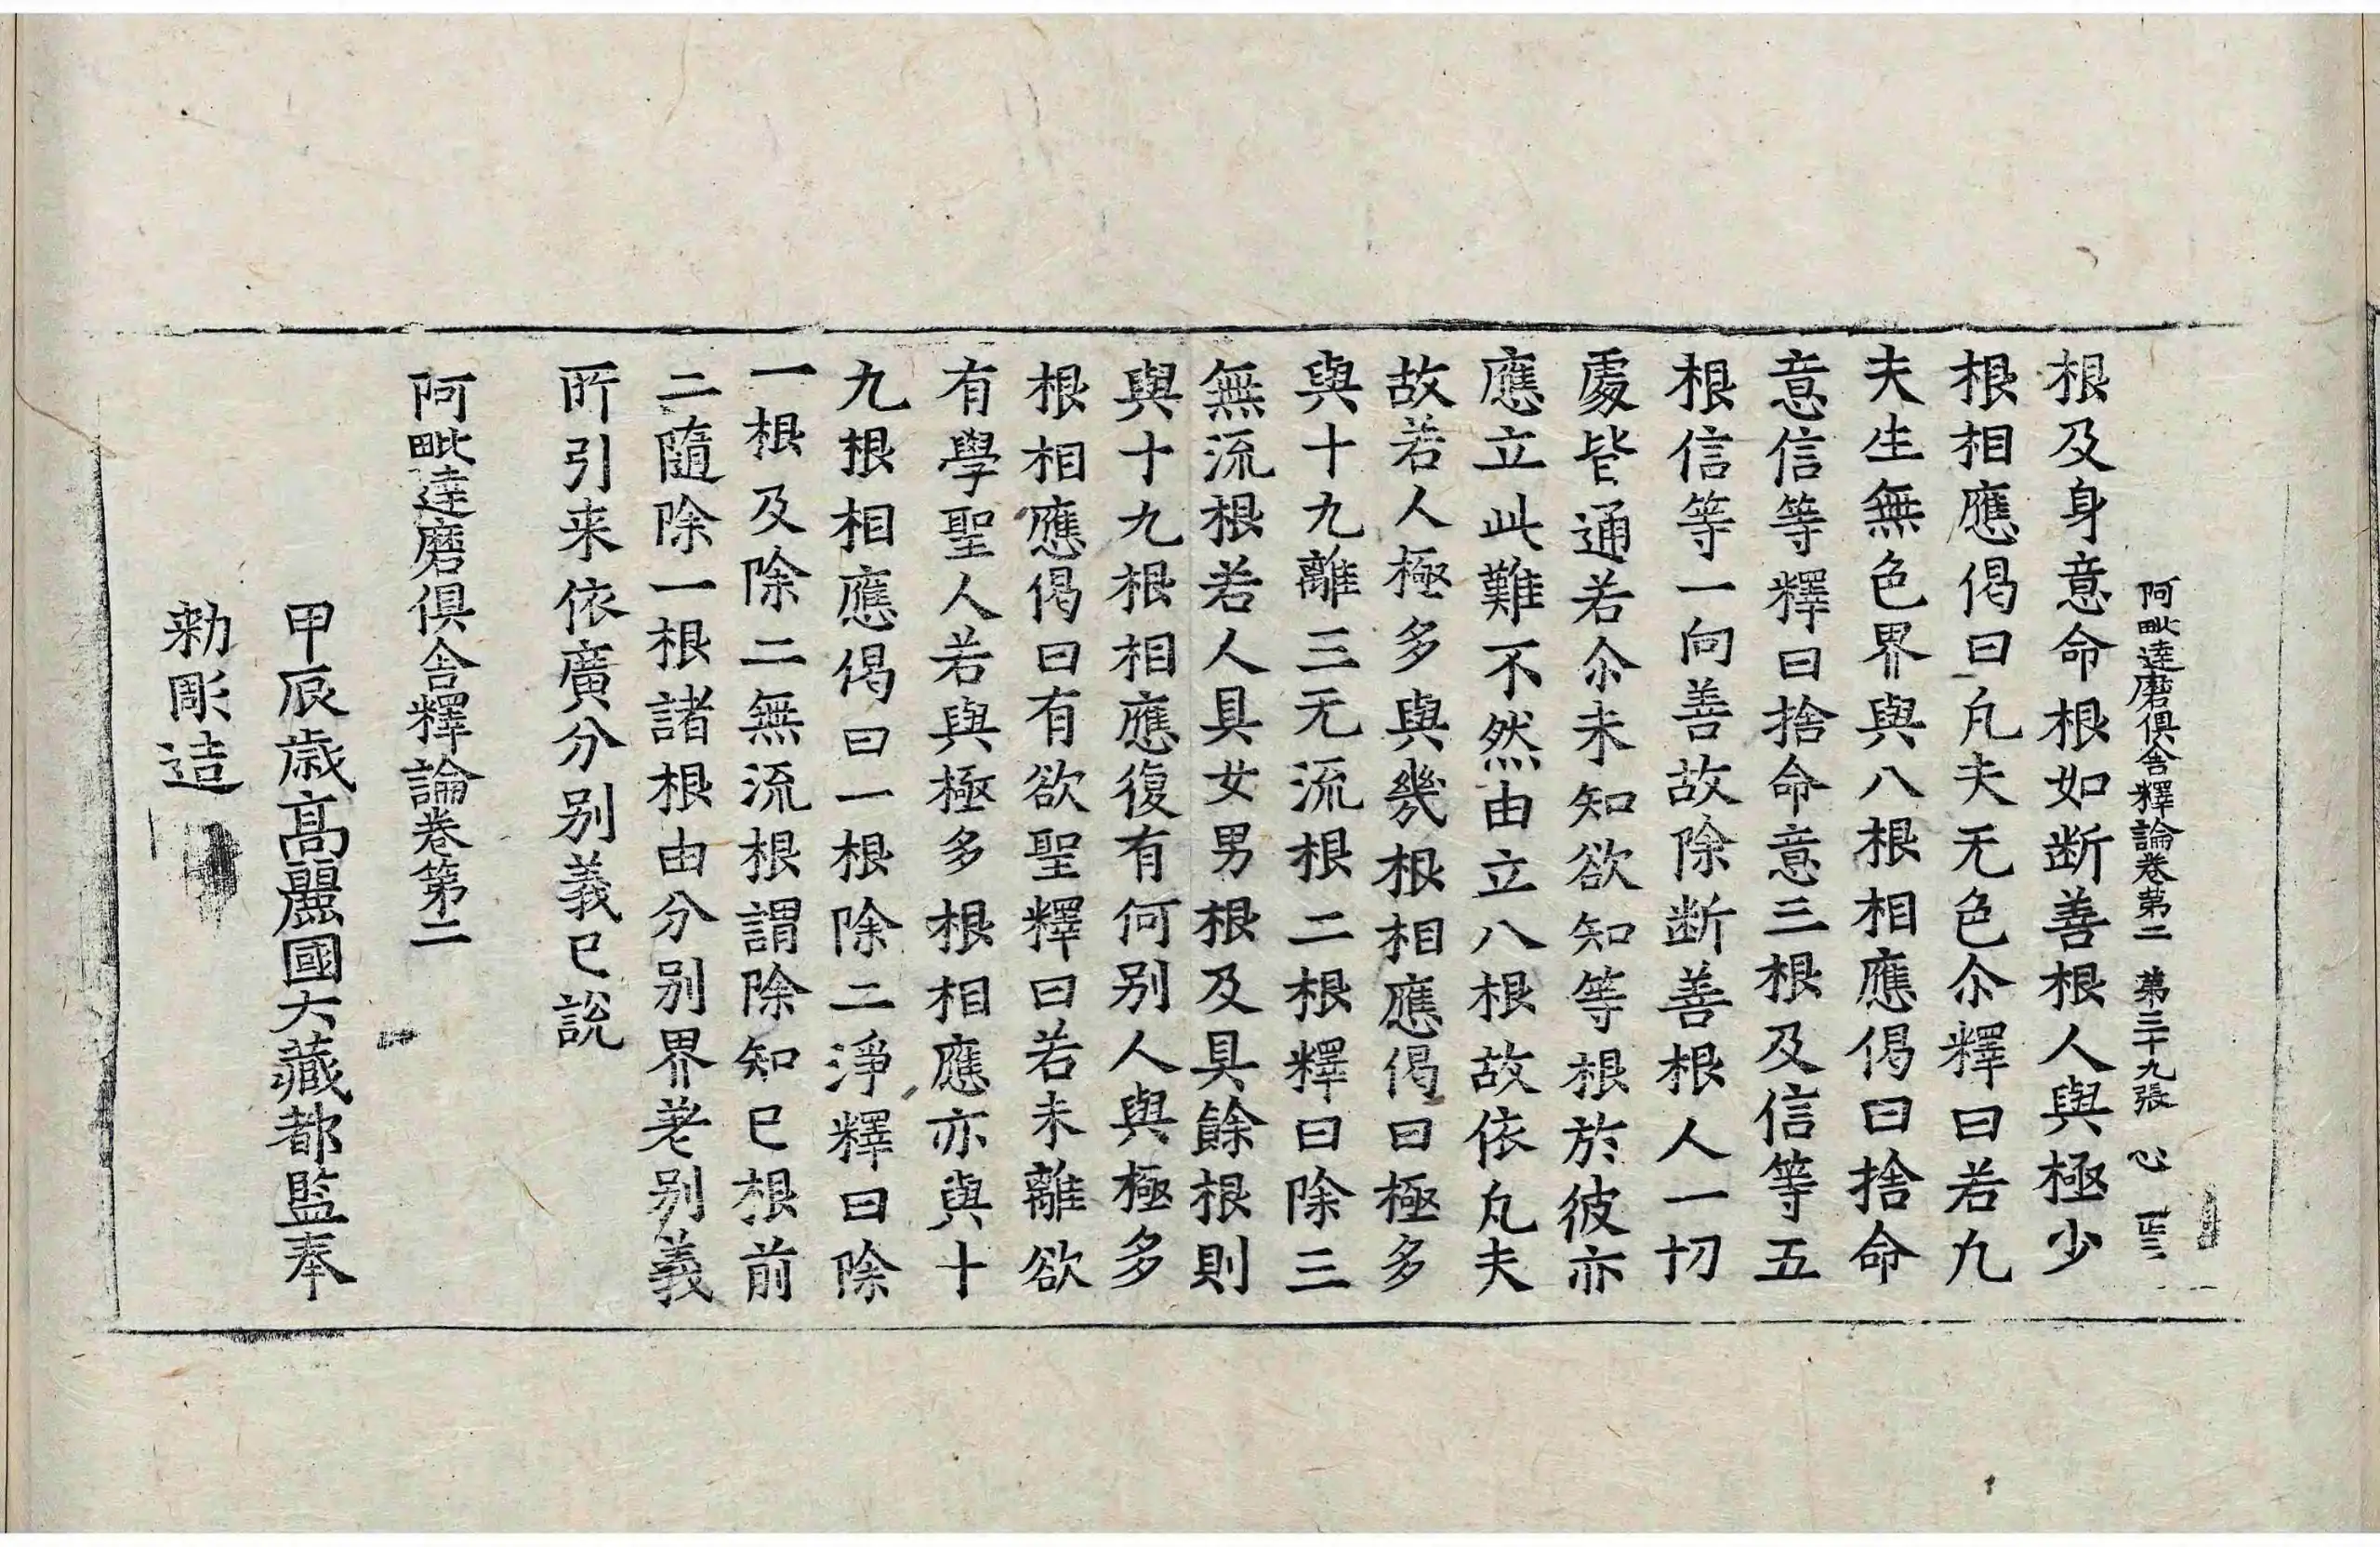 阿毗達磨俱舍釋論卷第二 第三十九張 心
根及身意命根如断善根人與極少
根相應偈曰凡夫无色尒釋曰若九
夫生無色界與八根相應偈曰捨命
意信等釋曰捨命意三根及信等五
根信等一向善故除断善根人一切
處皆通若尒未知欲知等根於彼亦
應立此難不然由立八根故依凡夫
故若人極多與幾根相應偈曰極多
與十九離三无流根二根釋曰除三
無流根若人具女男根及具餘根則
與十九根相應復有何别人與極多
根相應偈曰有欲聖釋曰若未離欲
有學聖人若與極多根相應亦與十
九根相應偈曰一根除二淨釋曰除
一根及除二無流根謂除知已根前
二隨除一根諸根由分别界差别義
所引来依廣分别義已說
阿毗達磨俱舍釋論卷第二
甲辰歳高麗國大藏都監奉
勑彫造